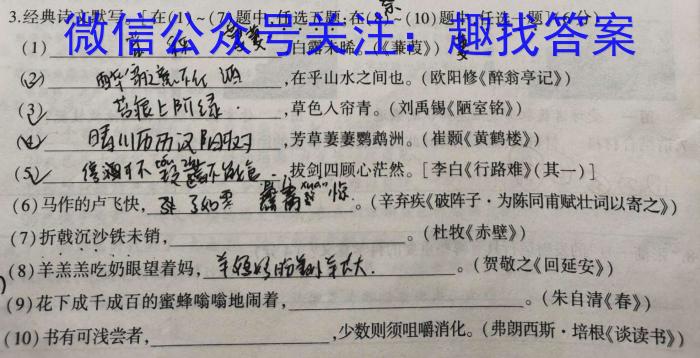 3.经典诗文默写。[在(1)~(7)题中,任选五题;在(8)~(10)题中,任选一题](6分)
微信公众号关注：趣找答案
(1) 白露未晞。(《蒹葭》)
(2) 醉翁之意不在酒 ,在乎山水之间也。(欧阳修《醉翁亭记》)
(3) 苔痕上阶绿 ,草色入帘青。(刘禹锡《陋室铭》)
(4) 晴川历历汉阳树 ,芳草萋萋鹦鹉洲。(崔颢《黄鹤楼》)
(5) 停酒 不 不能食 ,拔剑四顾心茫然。[李白《行路难》(其一)]
(6)马作的卢飞快, 如 惊 。(辛弃疾《破阵子·为陈同甫赋壮词以寄之》)
(7)折戟沉沙铁未销, 。(杜牧《赤壁》)
(8)羊羔羔吃奶眼望着妈, 羊 大 。(贺敬之《回延安》)
(9)花下成千成百的蜜蜂嗡嗡地闹着, 。(朱自清《春》)
(10)书有可浅尝者, ,少数则须咀嚼消化。(弗朗西斯·培根《谈读书》)